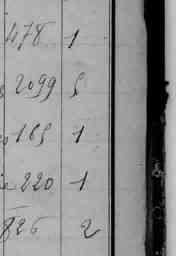 478 1
2099 5
185 1
220 1
826 2